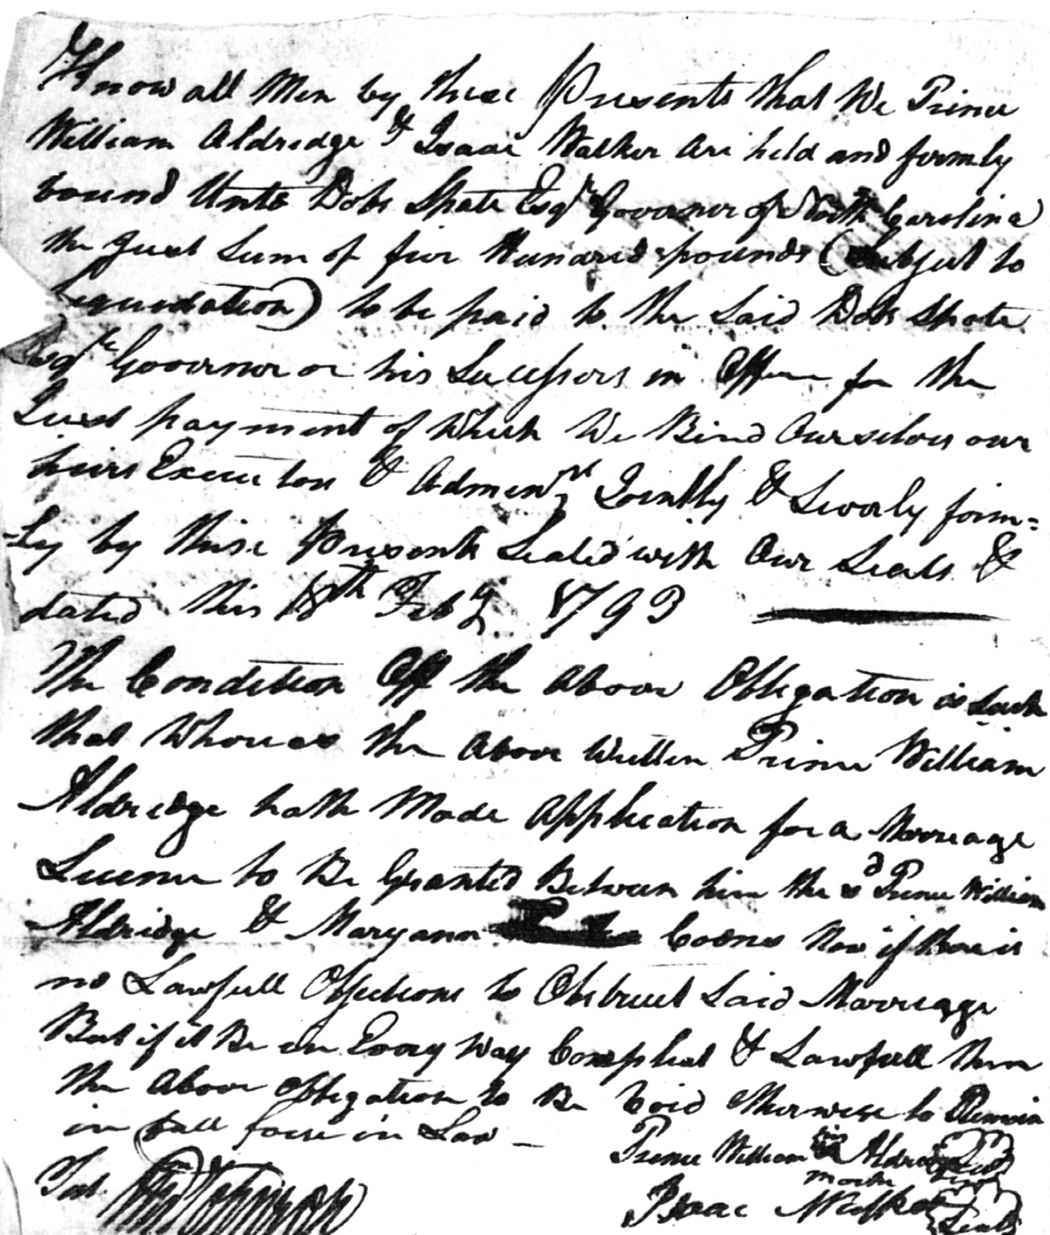 Know all Men by these Presents that We Prince
William Aldridge & Isaac Walker are held and firmly
bound Unto Dobs Spate Esqr Governor of North Carolina
the Just Sum of five Hundred pounds (Subject to
liquidation) to be paid to the Said Dobs Spate
Esqr Governor or his Sucessors in Office for the
Just payment of Which We Bind Ourselves our
heirs Executors & Adminrs Jointly & Severly firm=
=ly by these Presents Sealed with Our Seals &
dated this 18th Feby 1793
The Condition Off the Above Obligation is Such
that Whereas the Above Written Prince William
Aldridge hath Made Application for a Marriage
Licence to Be Granted Between him the sd Prince William
Aldridge & Maryann Now if there is
no Lawfull Objections to Obstruct Said Marriage
But if it Be in Every Way Compleat & Lawfull then
the Above Obligation to Be Void Otherwise to Remain
in full force in Law
Prince William his Aldridge Seal
Test. mark
Isaac Walker Seal